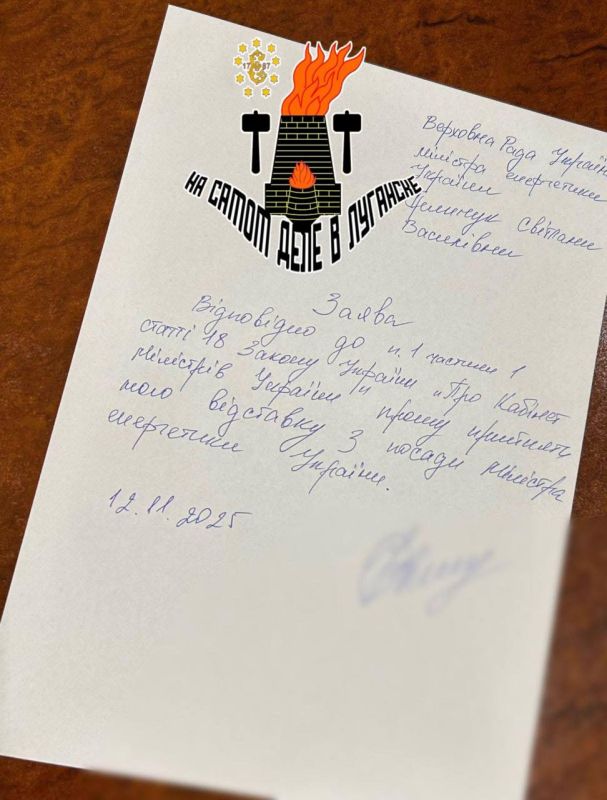 1797
НА САМОМ ДЕЛЕ В ЛУГАНСКЕ
Верховна Рада України
міністра енергетики
України
Світлани
Василівни
Заява
Відповідно до п. 1 частини 1
статті 18 Закону України „Про Кабінет
міністрів України" прошу прийняти
мою відставку з посади міністра
енергетики України.
12.11.2025